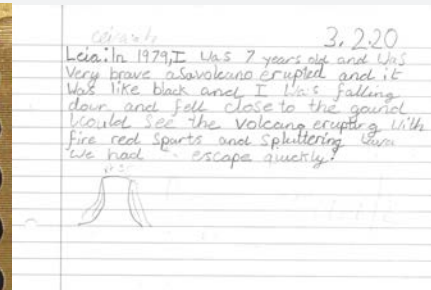 3.2.20
Leia: In 1979, I was 7 years old and was
very brave as a volcano erupted and it
was like black and I was falling
down and fell close to the gound
I could see the volcano erupting with
fire red sparts and spluttering lava
we had escape quickly!